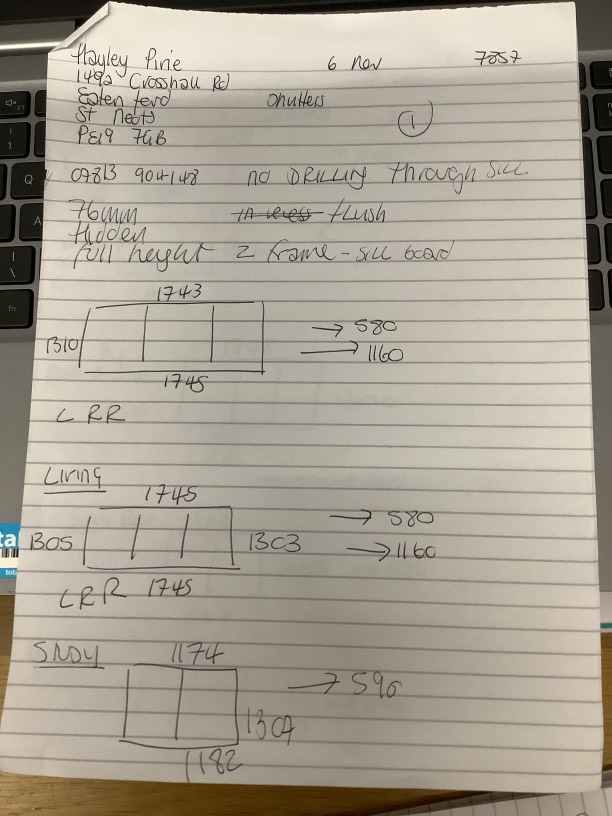 Hayley Pirie 6 Nov 7857
149a Crosshall Rd
Eaten ford Shutters
St Neots 1
PE19 7GB
07813 904148 no DRILLING through SILL.
76mm in recess flush
Hidden
full height Z frame - sill board
1743
1310 → 580
→ 1160
1745
L RR
Living
1745
→ 580
1305 1303 → 1160
LRR 1745
1174
→ 590
1304
1182